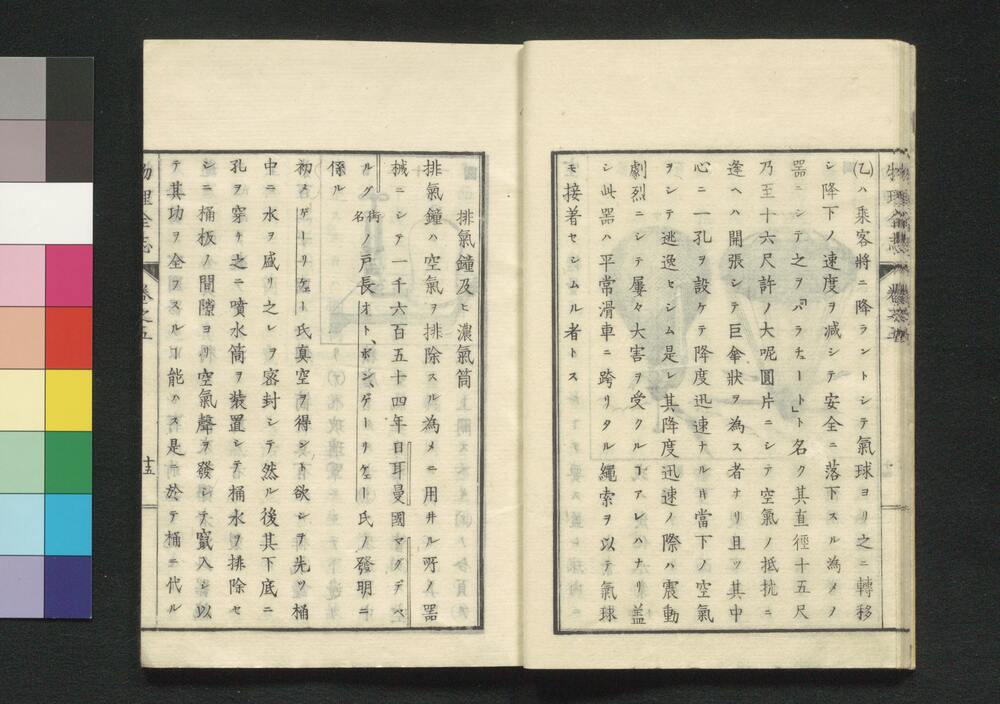 (乙)ハ乘客將ニ降ラントシテ氣球ヨリ之ニ轉移
シ降下ノ速度ヲ減シテ安全ニ落下スル為メノ
器ニシテ之ヲ「パラチュート」ト名ク其直徑十五尺
乃至十六尺許ノ大呢圓片ニシテ空氣ノ抵抗ニ
逢ヘハ開張シテ巨傘狀ヲ為ス者ナリ且ツ其中
心ニ一孔ヲ設ケテ降度迅速ナルキ當下ノ空氣
ヲシテ逃逸セシム是レ其降度迅速ノ際ハ震動
劇烈ニシテ屢々大害ヲ受クルヿアレハナリ蓋
シ此器ハ平常滑車ニ跨リタル繩索ヲ以テ氣球
ニ接着セシムル者トス
排氣鐘及ヒ濃氣筒
排氣鐘ハ空氣ヲ排除スル為メニ用井ル所ノ器
械ニシテ一千六百五十四年日耳曼國マグデベ
ルグ街名ノ戸長オト、ボン、ゲーリケー氏ノ發明ニ
係ル
初メゲーリケー氏真空ヲ得ント欲シテ先ツ桶
中ニ水ヲ盛リ之レヲ密封シテ然ル後其下底ニ
孔ヲ穿チ之ニ噴水筒ヲ装置シテ桶水ヲ排除セ
シニ桶板ノ間隙ヨリ空氣聲ヲ發シテ竄入シ以
テ其功ヲ全フスルヿ能ハス是ニ於テ桶ニ代ル
物理全志 卷之五
十五